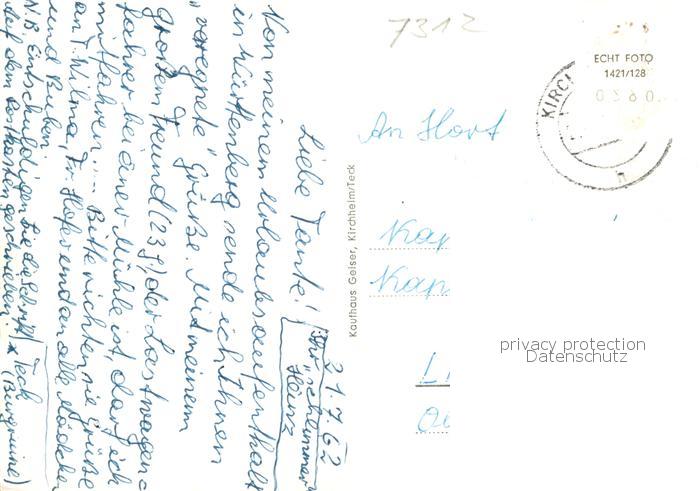 7312
ECHT FOTO
1421/128
KIRC
An Hort
Kap
Kap
L
Kaufhaus Geiser, Kirchheim/Teck
privacy protection
Datenschutz
21.7.62
Liebe Tante!
Von meinem Urlaubsaufenthalt
in Württenberg sende ich Ihnen
"verregnete" Grüße. Mit meinem
großem Freund (23 J) der Lastwagen-
fahrer bei einer Mühle ist, darf ich
mitfahren... Bitte richten sie Grüße
an T. Wilma, Fr. Hofer und an alle Mädchen
und Buben.
Ihr "schlimmer"
Heinz
N.B. Entschuldigen Sie die Schrift
auf dem Postkasten geschrieben.
* Teck
(Burgruine)